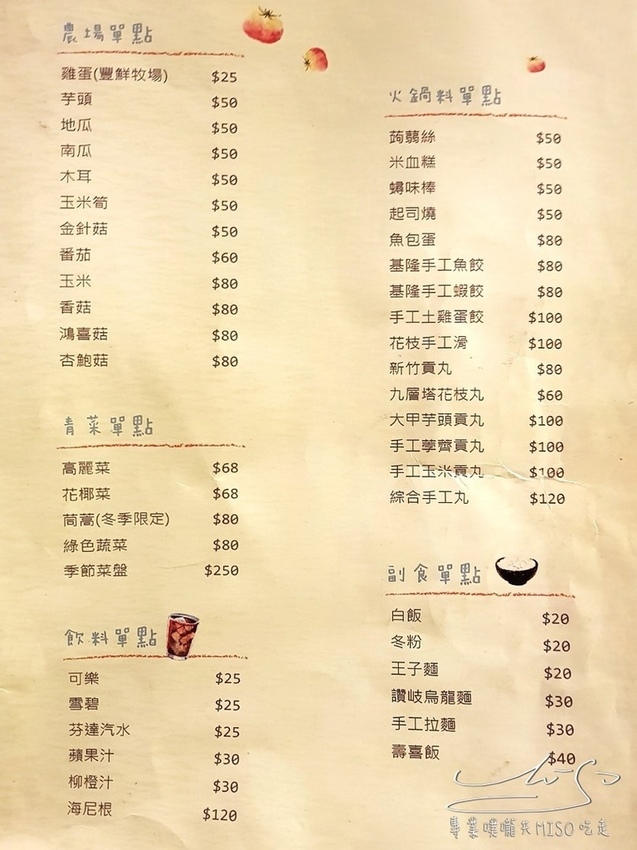 農場單點
雞蛋(豐鮮牧場) $25
芋頭 $50
地瓜 $50
南瓜 $50
木耳 $50
玉米筍 $50
金針菇 $50
番茄 $60
玉米 $80
香菇 $80
鴻喜菇 $80
杏鮑菇 $80
青菜單點
高麗菜 $68
花椰菜 $68
茼蒿(冬季限定) $80
綠色蔬菜 $80
季節菜盤 $250
飲料單點
可樂 $25
雪碧 $25
芬達汽水 $25
蘋果汁 $30
柳橙汁 $30
海尼根 $120
火鍋料單點
蒟蒻絲 $50
米血糕 $50
蟳味棒 $50
起司燒 $50
魚包蛋 $80
基隆手工魚餃 $80
基隆手工蝦餃 $80
手工土雞蛋餃 $100
花枝手工滑 $100
新竹貢丸 $80
九層塔花枝丸 $60
大甲芋頭貢丸 $100
手工荸薺貢丸 $100
手工玉米貢丸 $100
綜合手工丸 $120
副食單點
白飯 $20
冬粉 $20
王子麵 $20
讚岐烏龍麵 $30
手工拉麵 $30
壽喜飯 $40
專業噗嚨共MISO吃走